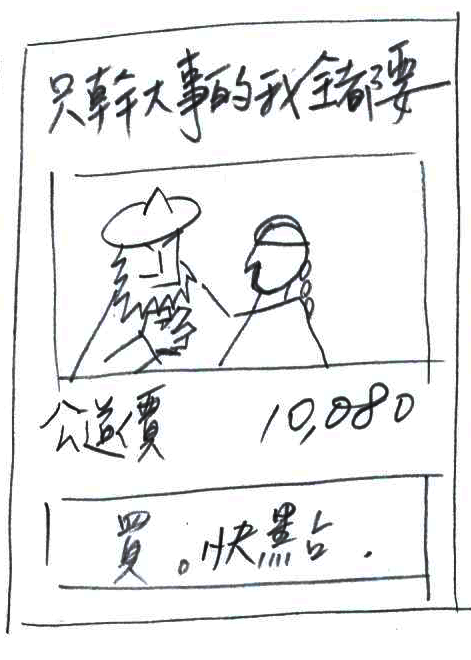 只幹大事的我全都要
公道價 10,080
買。快點.